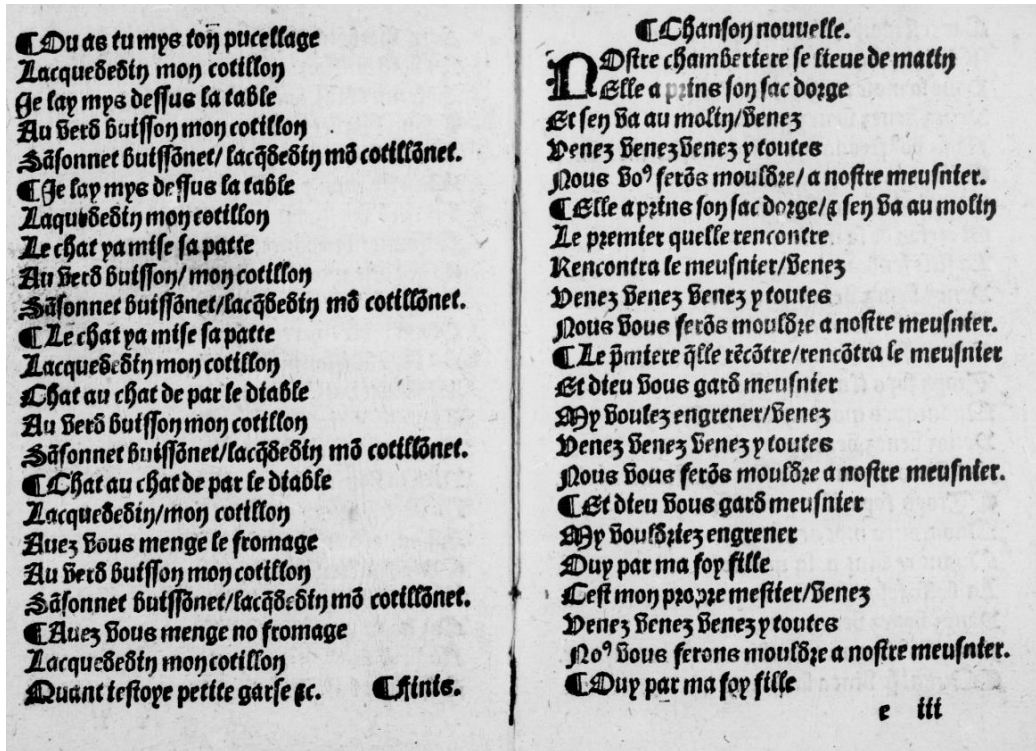 ¶Ou as tu mys toň pucellage
Lacquededin mon cotillon
Je lay mys dessus la table
Au verd buisson mon cotillon
Sãsonnet buissõnet/ lacq̃dedin mõ cotillõnet.
¶Je lay mys dessus la table
Laquededin mon cotillon
Le chat ya mise sa patte
Au verd buisson/ mon cotillon
Sãsonnet buissõnet/lacq̃dedin mõ cotillõnet.
¶Le chat ya mise sa patte
Lacquededin mon cotillon
Chat au chat de par le diable
Au verd buisson mon cotillon
Sãsonnet buissõnet/lacq̃dedin mõ cotillõnet.
¶Chat au chat de par le diable
Lacquededin/mon cotillon
Avez vous menge le fromage
Au verd buisson mon cotillon
Sãsonnet buissõnet/lacq̃dedin mõ cotillõnet.
¶Avez vous menge no fromage
Lacquededin mon cotillon
Quant iestoye petite garse ⁊c. ¶finis.
¶Chanson nouvelle.
NOstre chamberiere se lieve de matin
Elle a prins son sac dorge
Et sen va au molin/venez
Venez venez venez y toutes
Nous voꝰ ferõs mouldre/ a nostre meusnier.
¶Elle a prins son sac dorge/⁊ sen va au molin
Le premier quelle rencontre
Rencontra le meusnier/venez
Venez venez venez y toutes
Nous vous ferõs mouldre a nostre meusnier.
¶Le p̃miere q̃lle rẽcõtre/rencõtra le meusnier
Et dieu vous gard meusnier
My voulez engrener/venez
Venez venez venez y toutes
Nous vous ferõs mouldre a nostre meusnier.
¶Et dieu vous gard meusnier
My vouldriez engrener
Ouy par ma foy fille
Cest mon propre mestier/venez
Venez venez venez y toutes
Noꝰ vous ferons mouldre a nostre meusnier.
¶Ouy par ma foy fille
e iii